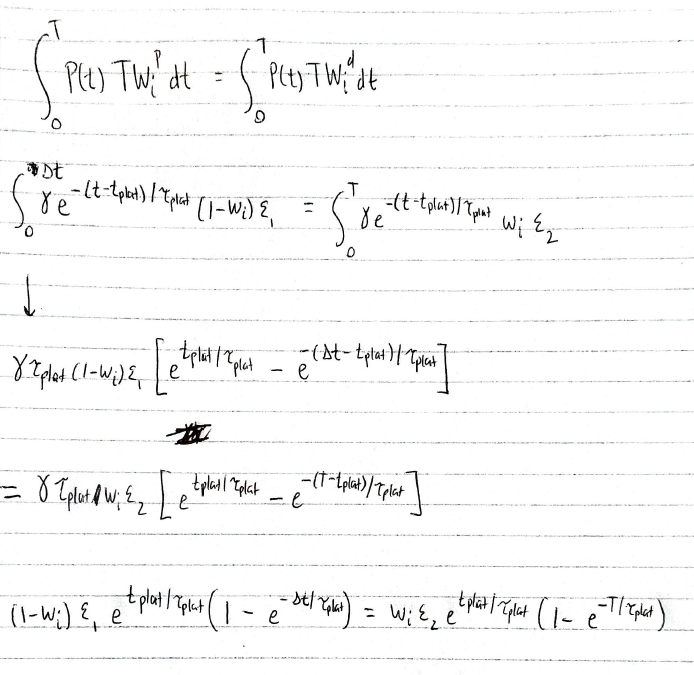 ∫₀ᵀ P(t) TWᵢᵖ dt = ∫₀ᵀ P(t) TWᵢᵈ dt
∫₀^Δt γe^(-(t-tplat)/τplat) (1-Wᵢ) ε₁ = ∫₀ᵀ γe^(-(t-tplat)/τplat) wᵢ ε₂
↓
γτplat (1-Wᵢ) ε₁ [e^(tplat/τplat) - e^(-(Δt-tplat)/τplat)]
= γ τplat Wᵢ ε₂ [e^(tplat/τplat) - e^(-(T-tplat)/τplat)]
(1-Wᵢ) ε₁ e^(tplat/τplat) (1 - e^(-Δt/τplat)) = Wᵢ ε₂ e^(tplat/τplat) (1 - e^(-T/τplat))